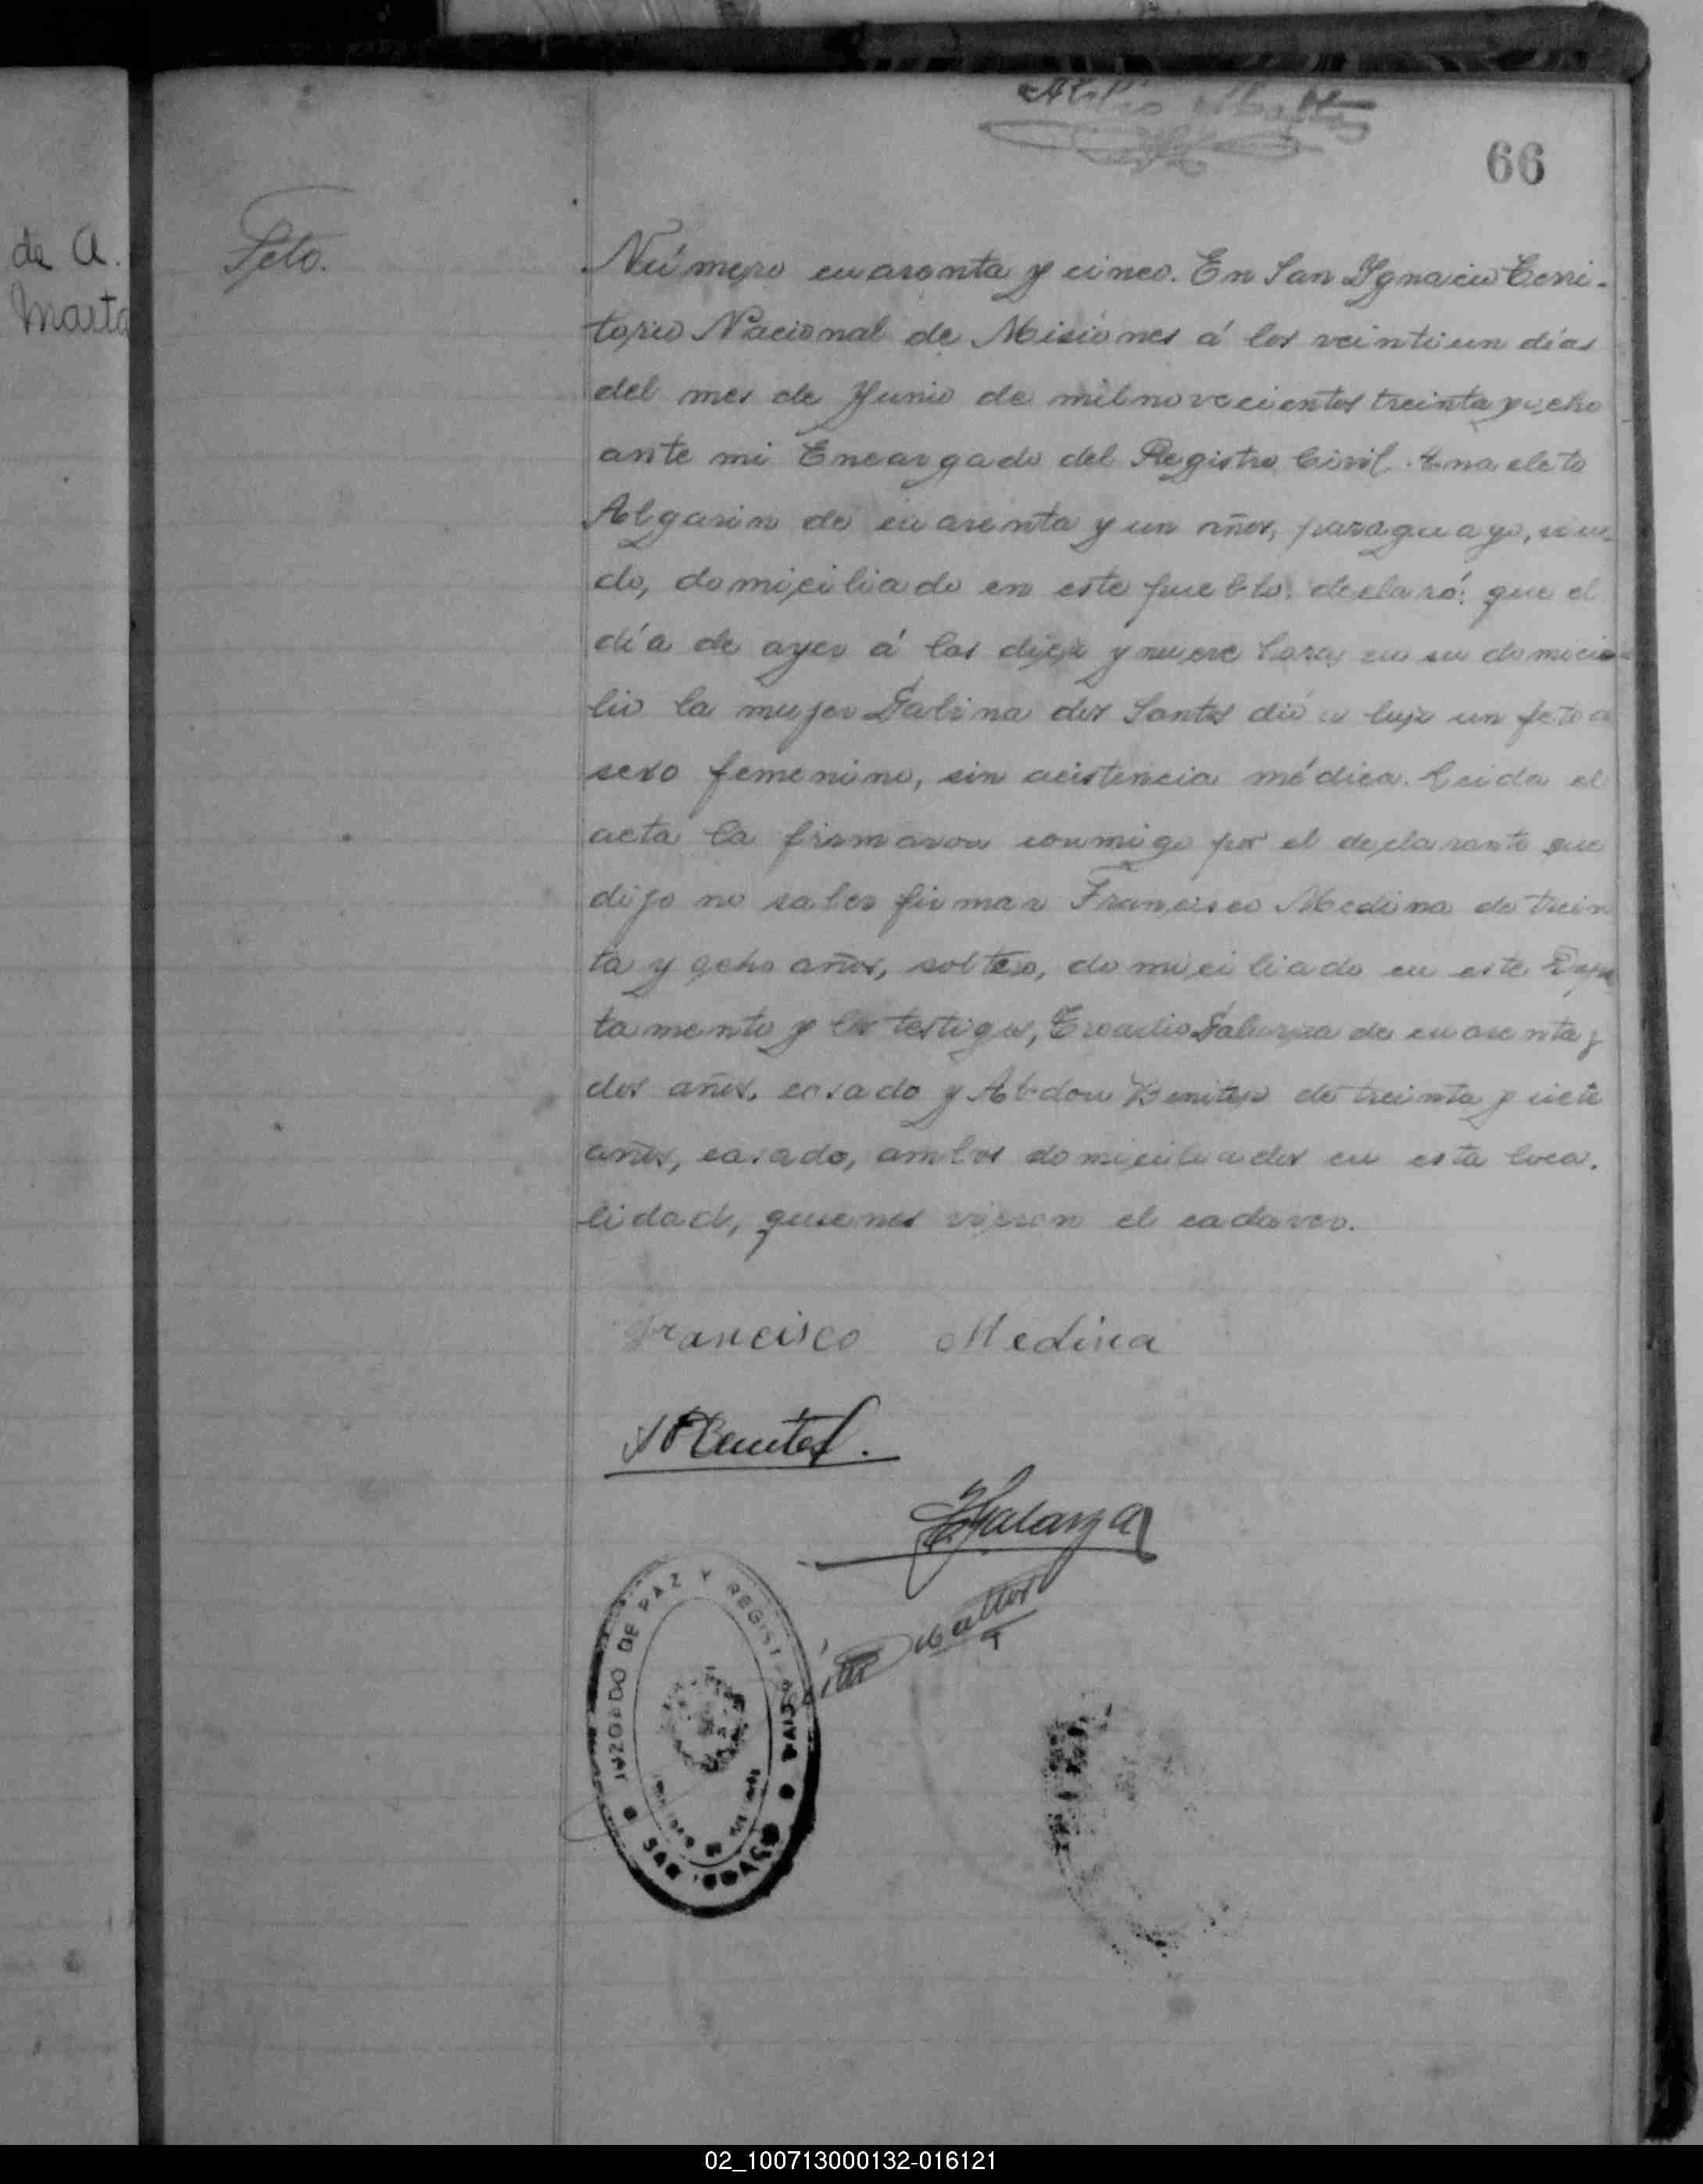 66
de A.
Marta
Feto.
Número cuarenta y cinco. En San Ygnacio Terri-
torio Nacional de Misiones á los veintiun días
del mes de Junio de mil novecientos treinta y ocho
ante mi Encargado del Registro Civil. Anacleto
Algarin de cuarenta y un años, paraguayo, viu-
do, domiciliado en este pueblo, declaró: que el
día de ayer á las diez y nueve horas en su domici-
lio la mujer Galina dos Santos dió a luz un feto
sexo femenino, sin acistencia médica. Leida el
acta la firmaron conmigo por el declarante que
dijo no saber firmar Francisco Medina de trein
ta y ocho años, soltero, domiciliado en este
tamento y los testigos, Eroadio Galarza de cuarenta y
dos años, casado y Abdon Benitez de treinta y siete
años, casado, ambos domiciliados en esta loca.
lidad, quienes vieron el cadaver.
Francisco Medina
A Benitez.
E Galarza
JUZGADO DE PAZ Y REGIST
SAN
02_100713000132-016121